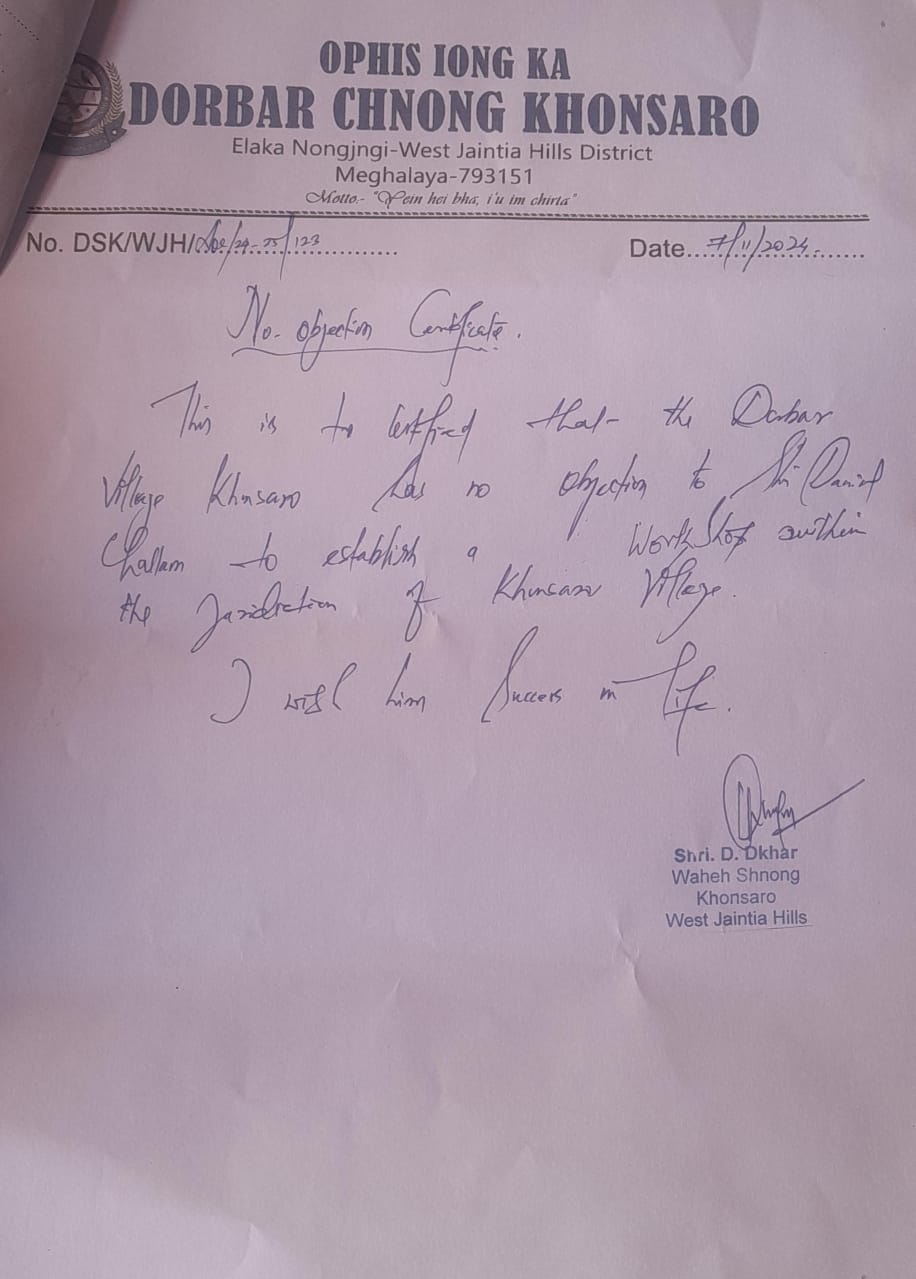 OPHIS IONG KA
DORBAR CHNONG KHONSARO
Elaka Nongjngi-West Jaintia Hills District
Meghalaya-793151
Motto:- "Yein hei bha, i'u im chirta"
No. DSK/WJH/ /24-25/123
Date....7/11/2024.......
No. objection Certificate.
This is to Certified that the Dorbar
Village Khonsaro has no objection to Shri Daniel
Challam to establish a WorkShop within
the Jurisdiction of Khonsaro Village.
I wish him Success in life.
Shri. D. Dkhar
Waheh Shnong
Khonsaro
West Jaintia Hills